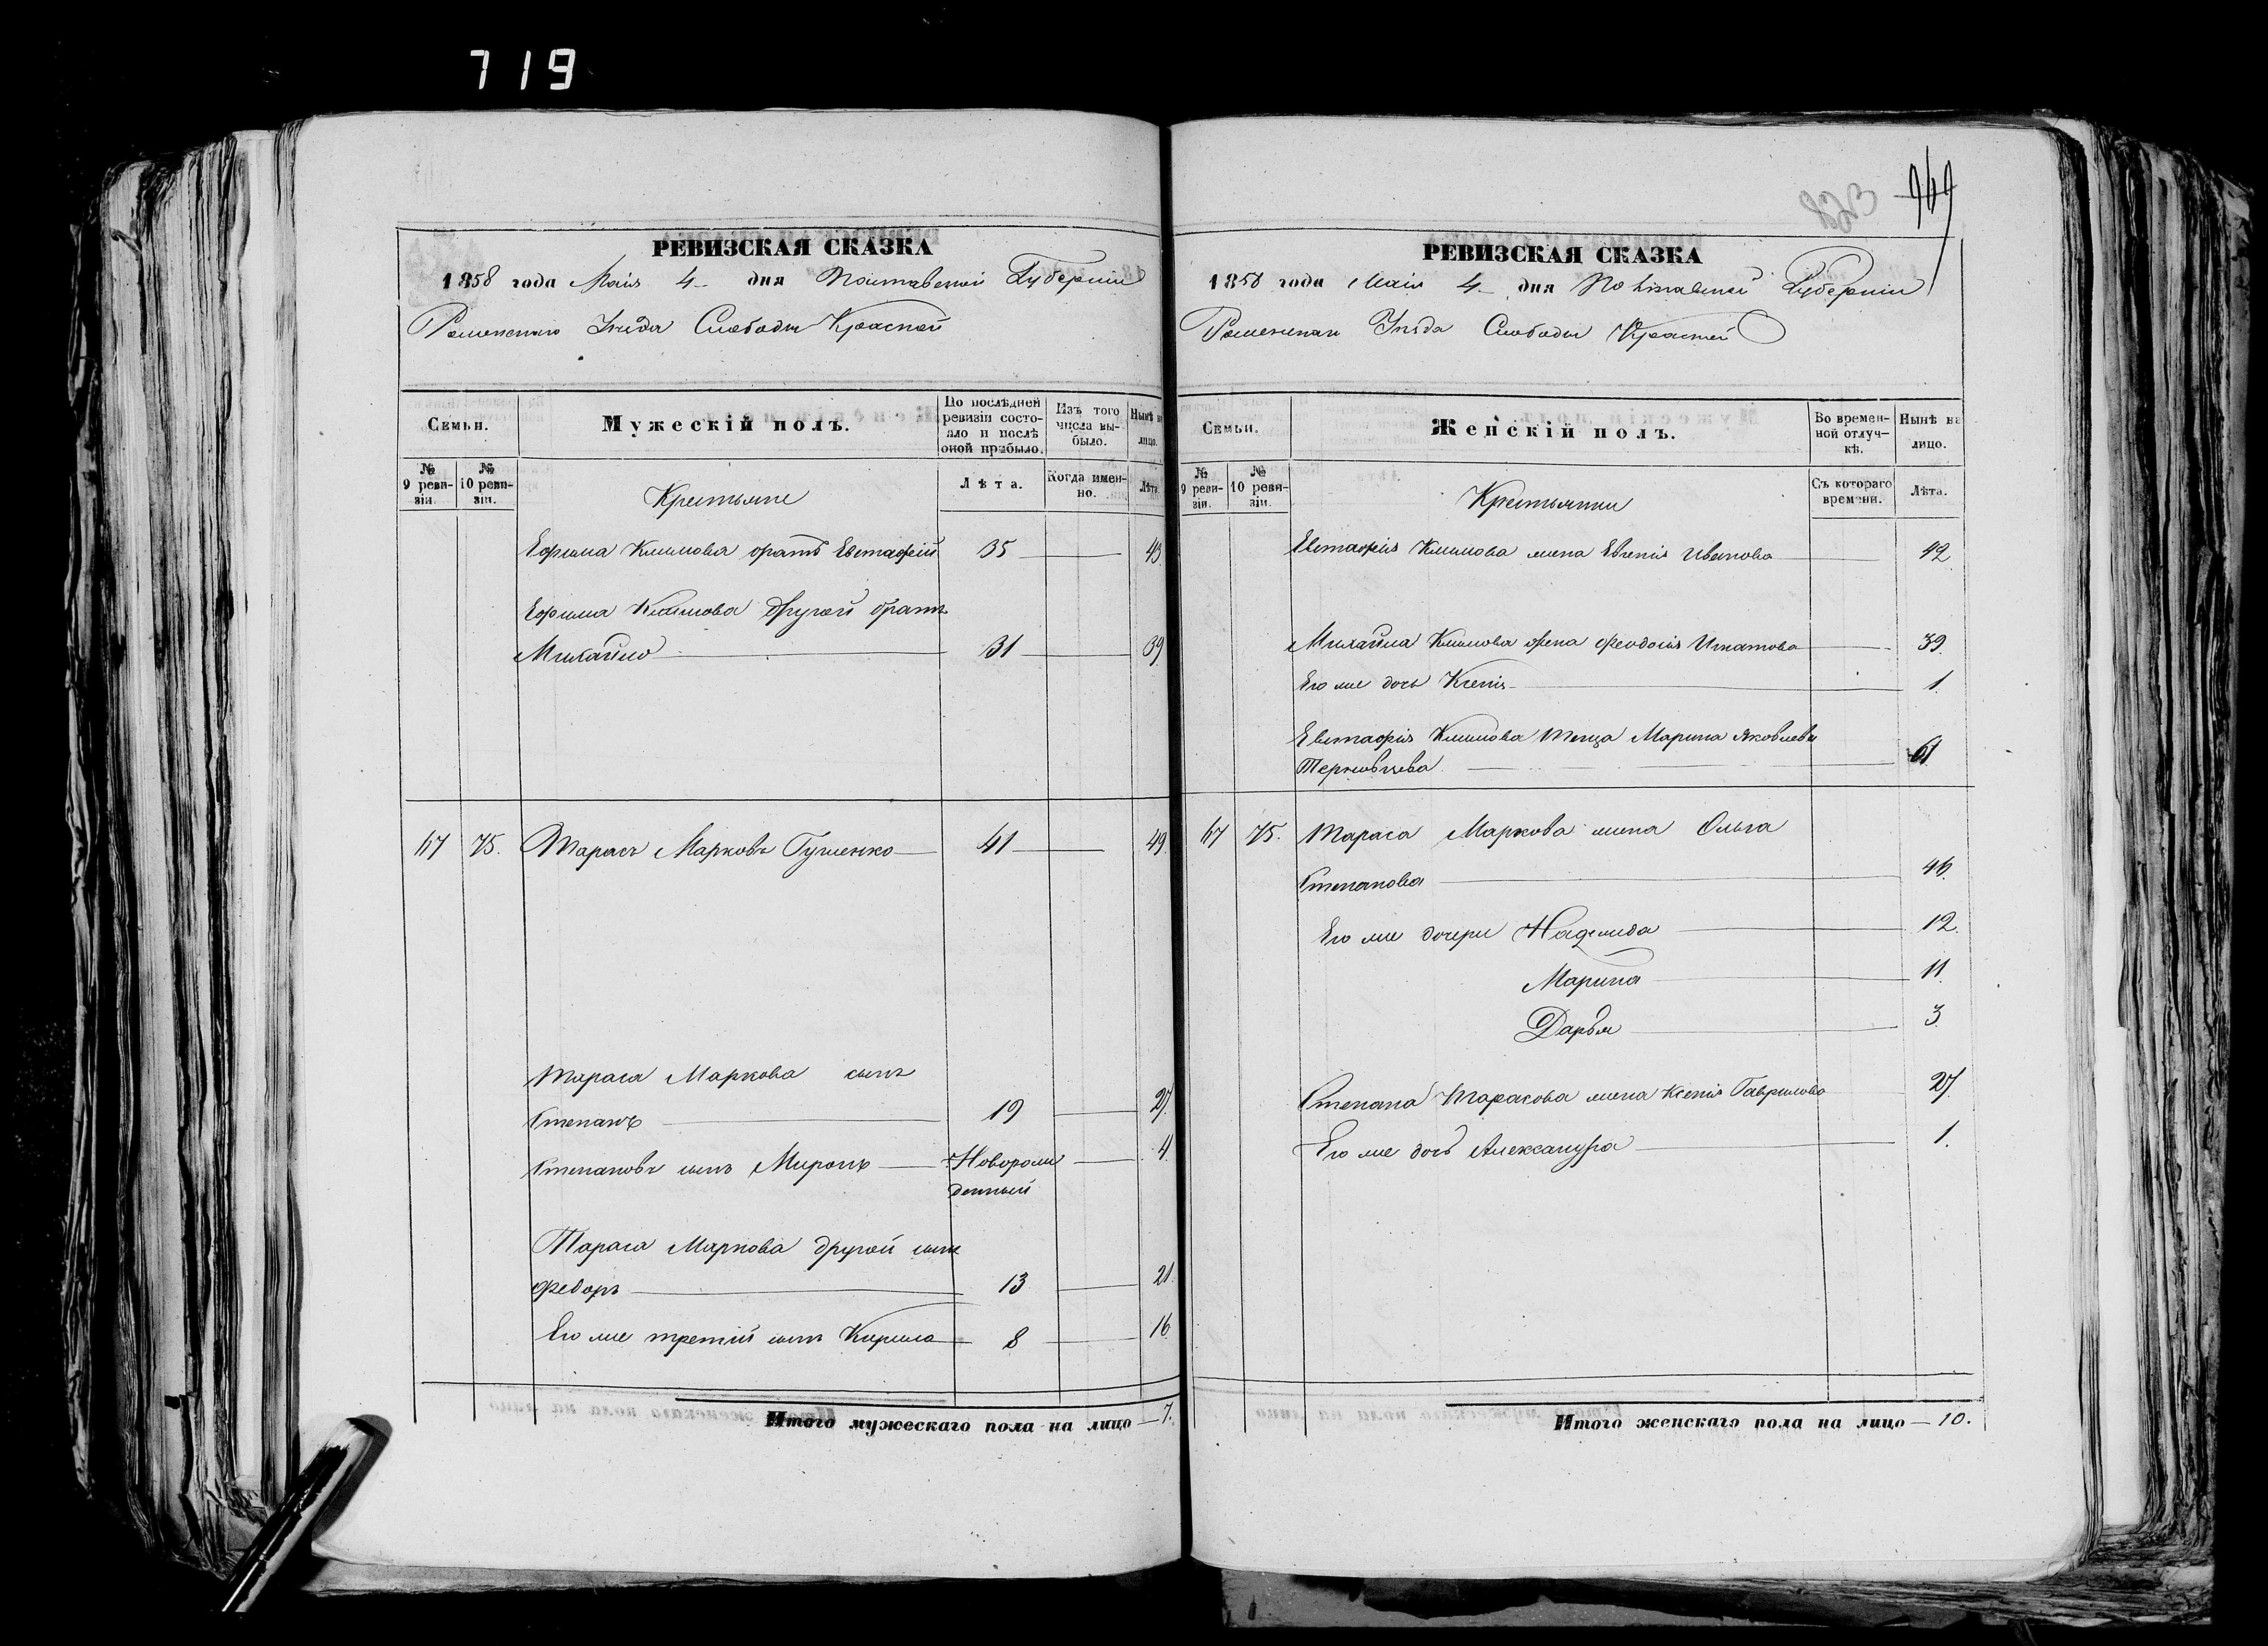 719
РЕВИЗСКАЯ СКАЗКА
1858 года Маія 4 дня Полтавской Губерніи
Роменскаго Уѣзда Слободы Красной
Семьи.
Мужескій полъ.
По послѣдней ревизіи состояло и послѣ оной прибыло.
Изъ того числа выбыло.
Нынѣ на лицо.
№ 9 ревизіи.
№ 10 ревизіи.
Лѣта.
Когда именно.
Лѣта.
Крестьяне
Ефима Климова братъ Евстафій 35 43
Ефима Климова другой братъ
Михайло 31 39
67 75. Тарасъ Марковъ Гученко 41 49.
Тараса Маркова сынъ
Степанъ 19 27.
Степановъ сынъ Миронъ Новорож 4.
денный
Тараса Маркова другой сынъ
Федоръ 13 21.
Его же третій сынъ Кирило 8 16.
Итого мужескаго пола на лицо — 7.
823 969
РЕВИЗСКАЯ СКАЗКА
1858 года Маія 4 дня Полтавской Губерніи
Роменскаго Уѣзда Слободы Красной
Семьи.
Женскій полъ.
Во временной отлучкѣ.
Нынѣ на лицо.
№ 9 ревизіи.
№ 10 ревизіи.
Съ котораго времени.
Лѣта.
Крестьянки
Евстафія Климова жена Евгенія Иванова 42
Михайла Климова жена Феодосія Игнатова 39.
Его же дочь Ксенія 1.
Евстафія Климова теща Марина Яковлева
61.
67 75. Тараса Маркова жена Ольга
Степанова 46.
Его же дочери Надежда 12.
Марина 11.
Дарья 3
Степана Тарасова жена Ксенія Гаврилова 27.
Его же дочь Александра 1.
Итого женскаго пола на лицо — 10.